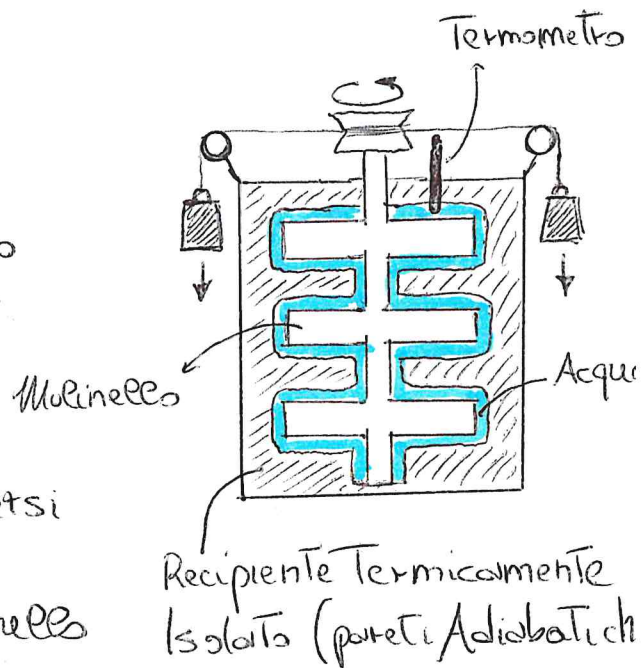 Termometro
Mulinello
Acqu
Recipiente Termicamente
Isolato (pareti Adiabatich